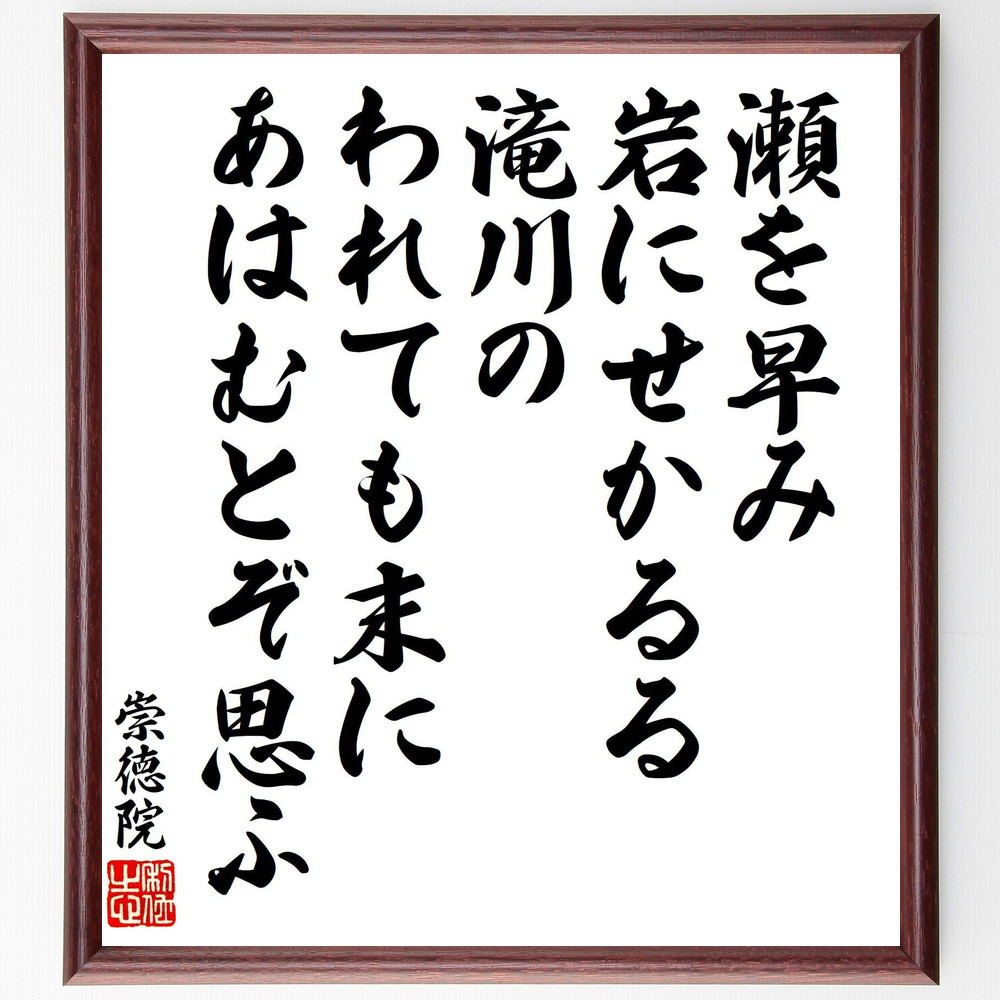 瀬を早み
岩にせかるる
滝川の
われても末に
あはむとぞ思ふ
崇徳院